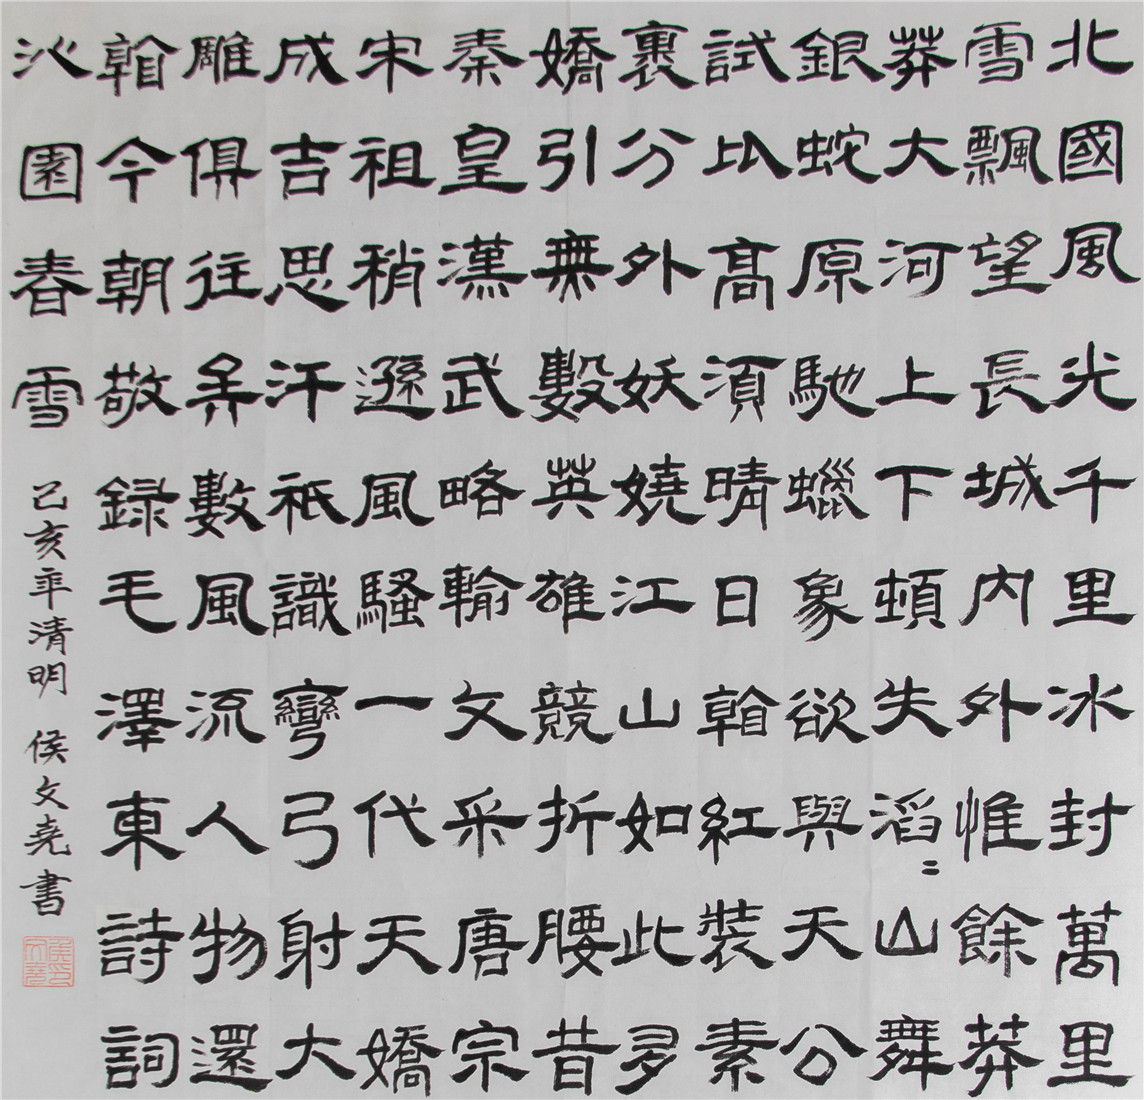 北國風光千里冰封萬里
雪飄望長城內外惟餘莽
莽大河上下頓失滔〻山舞
銀蛇原馳蠟象欲與天公
試比高須晴日看紅裝素
裹分外妖嬈江山如此多
嬌引無數英雄競折腰昔
秦皇漢武略輸文采唐宗
宋祖稍遜風騷一代天嬌
成吉思汗祇識彎弓射大
雕俱往矣數風流人物還
看今朝敬録毛澤東詩詞
沁園春雪 己亥年清明 侯文堯書